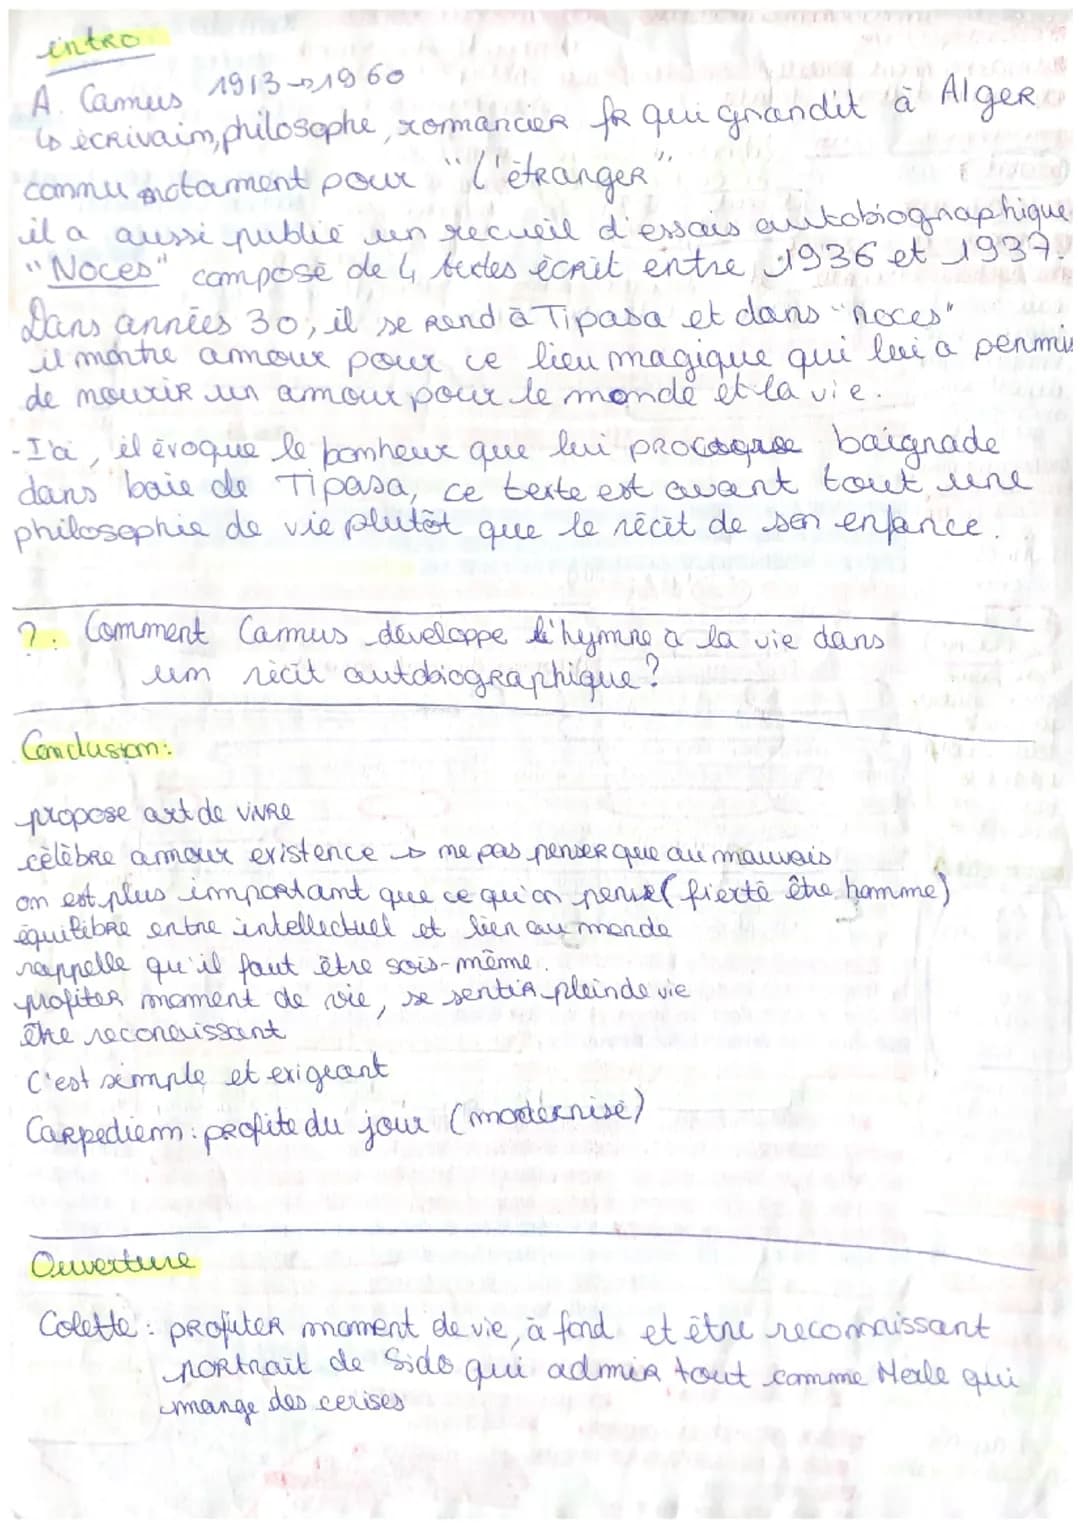 intro
A. Camus 1913→1960
↳ écrivain, philosophe, romancier fr qui grandit à Alger
connu notament pour "l'étranger"
il a aussi publié un recueil d'essais autobiographique
"Noces" composé de 4 textes écrit entre 1936 et 1937.
Dans années 30, il se rend à Tipasa et dans "noces"
il montre amour pour ce lieu magique qui lui a permis
de nourir un amour pour le monde et la vie.
- Ici, il évoque le bonheur que lui baignade
dans baie de Tipasa, ce texte est avant tout une
philosophie de vie plutôt que le récit de son enfance.
?. Comment Camus développe l'hymne à la vie dans
un récit autobiographique?
Conclusion:
propose art de vivre
célèbre amour existence → ne pas penser que au mauvais
on est plus important que ce qu'on pense (fierté être homme)
équilibre entre intellectuel et lien au monde
rappelle qu'il faut être sois-même.
profiter moment de vie, se sentir plein de vie
être reconaissant
C'est simple et exigeant
Carpediem: profite du jour (modernisé)
Ouverture
Colette: profiter moment de vie, à fond et être reconnaissant
portrait de Sido qui admir tout comme Merle qui
mange des cerises